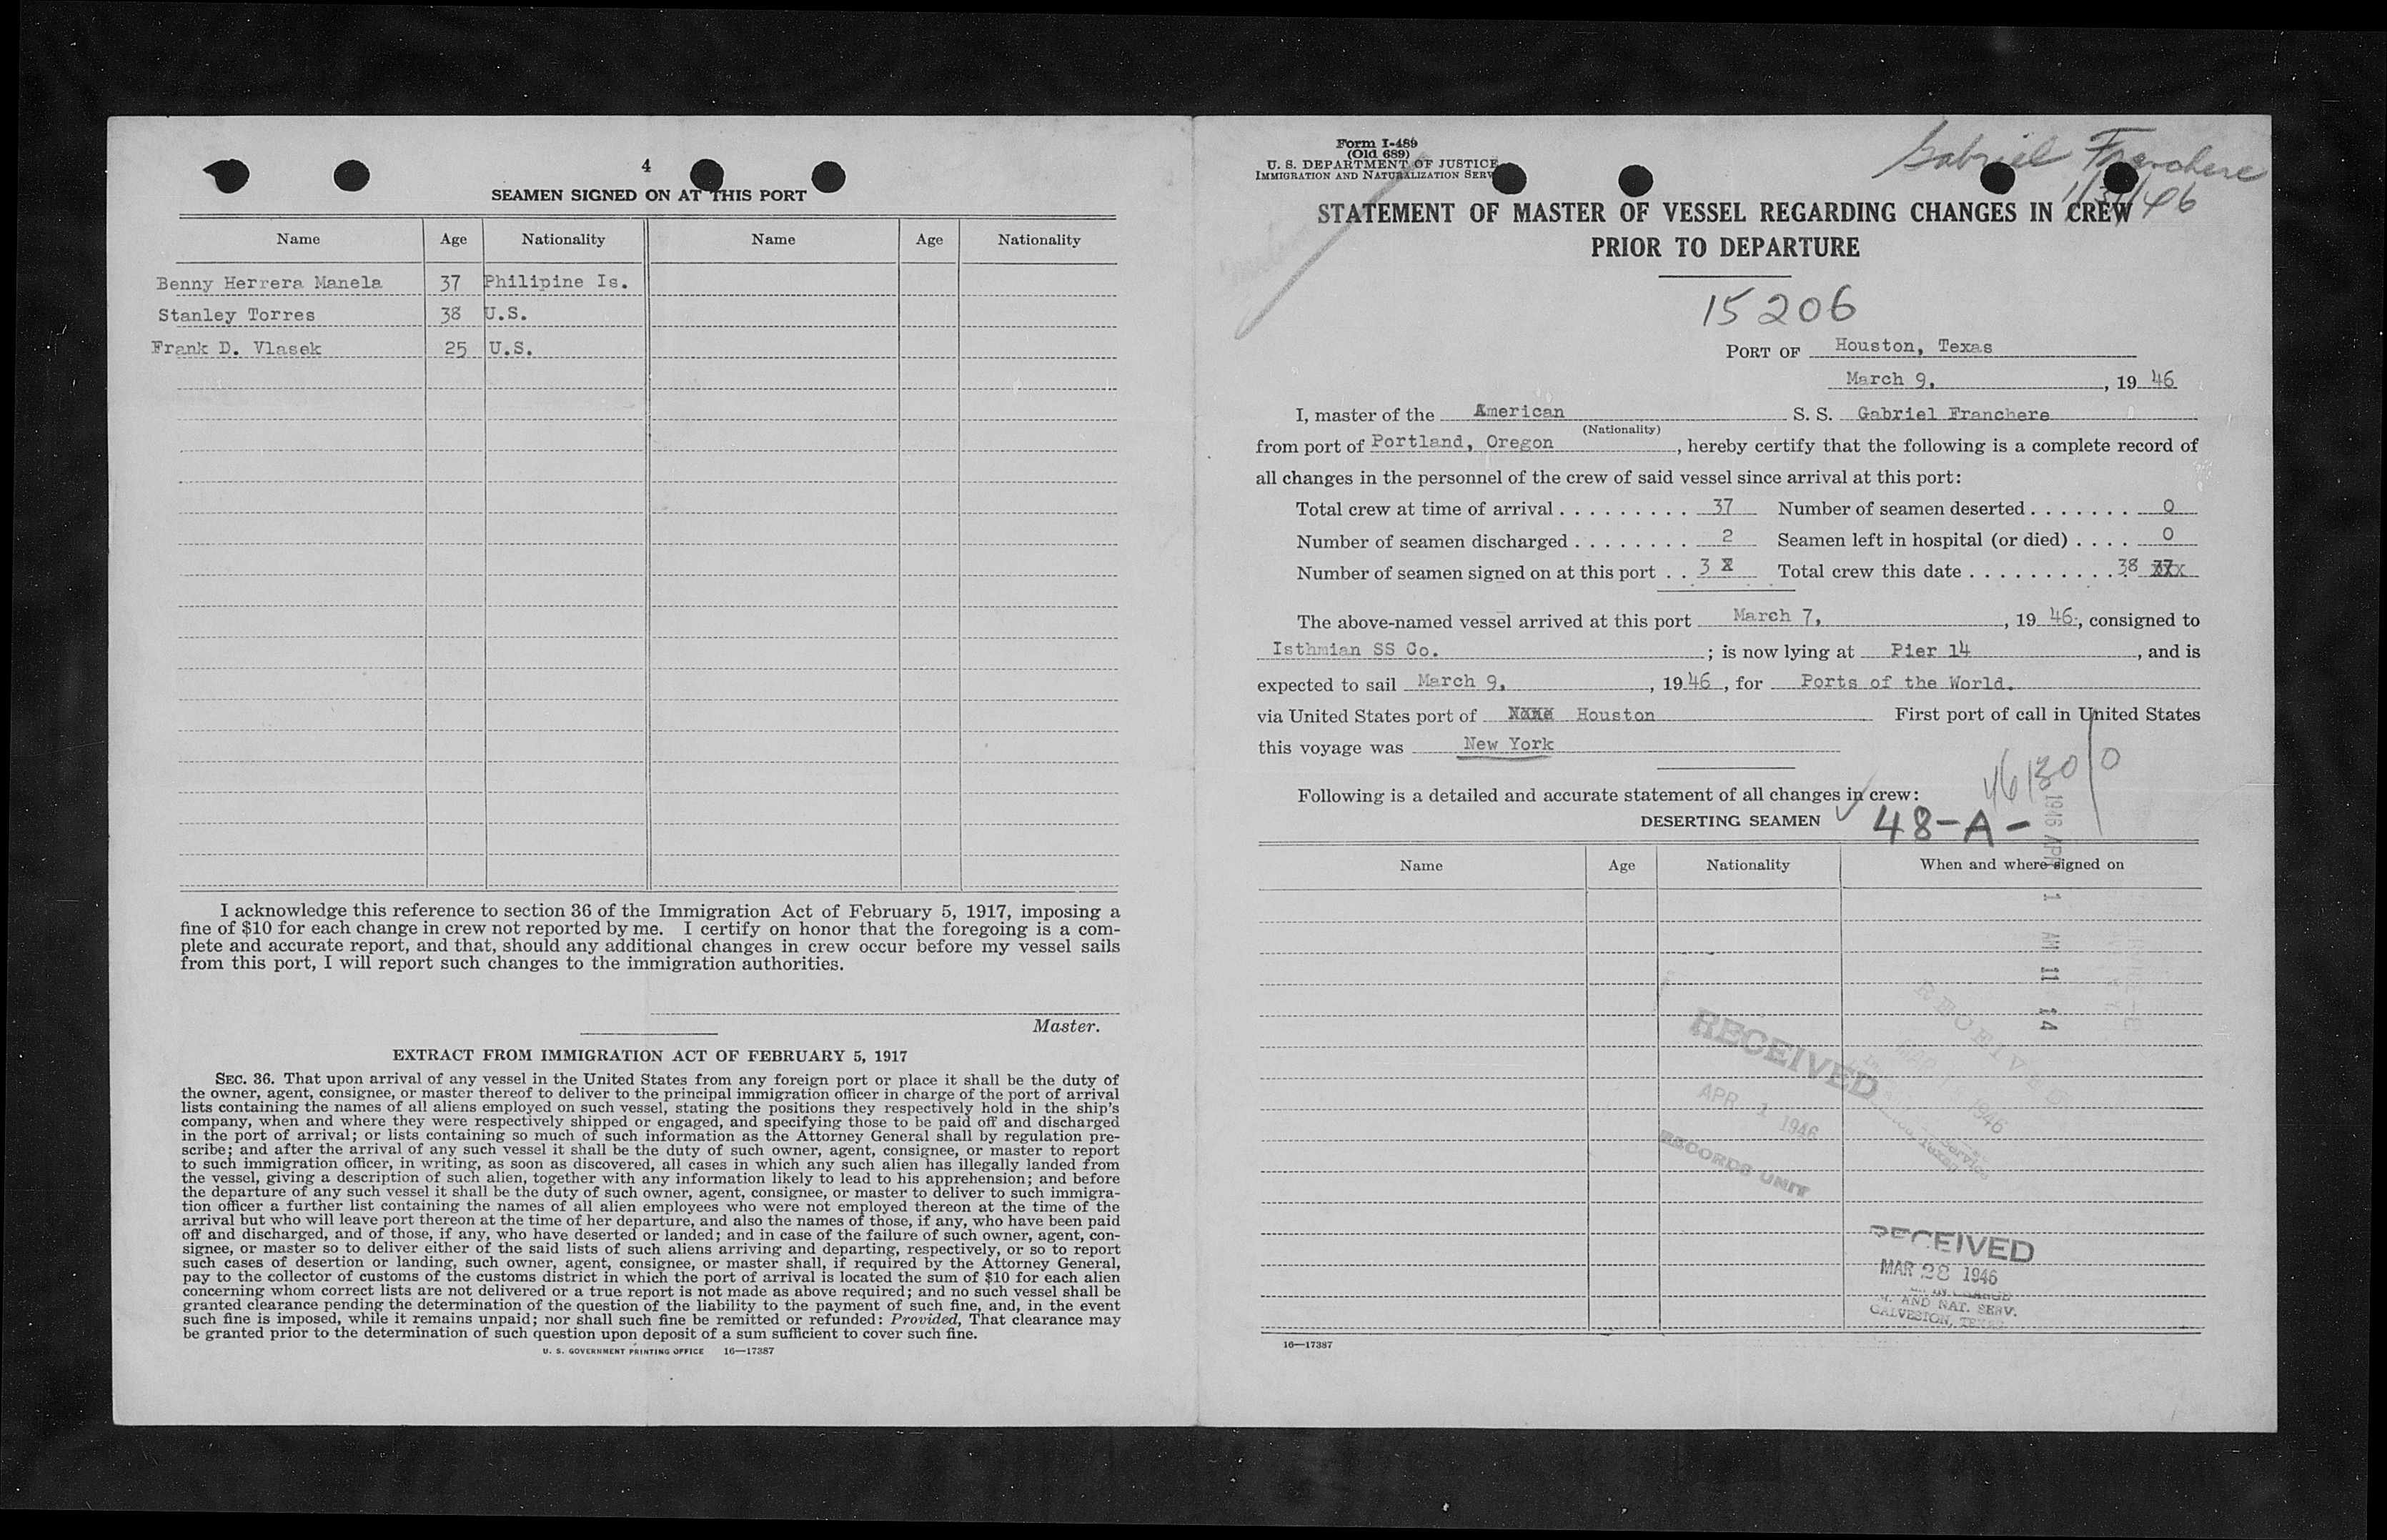 4
SEAMEN SIGNED ON AT THIS PORT
Name Age Nationality Name Age Nationality
Benny Herrera Manela 37 Philipine Is.
Stanley Torres 38 U.S.
Frank D. Vlasek 25 U.S.
I acknowledge this reference to section 36 of the Immigration Act of February 5, 1917, imposing a
fine of $10 for each change in crew not reported by me. I certify on honor that the foregoing is a com-
plete and accurate report, and that, should any additional changes in crew occur before my vessel sails
from this port, I will report such changes to the immigration authorities.
Master.
EXTRACT FROM IMMIGRATION ACT OF FEBRUARY 5, 1917
SEC. 36. That upon arrival of any vessel in the United States from any foreign port or place it shall be the duty of
the owner, agent, consignee, or master thereof to deliver to the principal immigration officer in charge of the port of arrival
lists containing the names of all aliens employed on such vessel, stating the positions they respectively hold in the ship's
company, when and where they were respectively shipped or engaged, and specifying those to be paid off and discharged
in the port of arrival; or lists containing so much of such information as the Attorney General shall by regulation pre-
scribe; and after the arrival of any such vessel it shall be the duty of such owner, agent, consignee, or master to report
to such immigration officer, in writing, as soon as discovered, all cases in which any such alien has illegally landed from
the vessel, giving a description of such alien, together with any information likely to lead to his apprehension; and before
the departure of any such vessel it shall be the duty of such owner, agent, consignee, or master to deliver to such immigra-
tion officer a further list containing the names of all alien employees who were not employed thereon at the time of the
arrival but who will leave port thereon at the time of her departure, and also the names of those, if any, who have been paid
off and discharged, and of those, if any, who have deserted or landed; and in case of the failure of such owner, agent, con-
signee, or master so to deliver either of the said lists of such aliens arriving and departing, respectively, or so to report
such cases of desertion or landing, such owner, agent, consignee, or master shall, if required by the Attorney General,
pay to the collector of customs of the customs district in which the port of arrival is located the sum of $10 for each alien
concerning whom correct lists are not delivered or a true report is not made as above required; and no such vessel shall be
granted clearance pending the determination of the question of the liability to the payment of such fine, and, in the event
such fine is imposed, while it remains unpaid; nor shall such fine be remitted or refunded: Provided, That clearance may
be granted prior to the determination of such question upon deposit of a sum sufficient to cover such fine.
U. S. GOVERNMENT PRINTING OFFICE 16—17387
Form I-489
(Old 689)
U. S. DEPARTMENT OF JUSTICE
IMMIGRATION AND NATURALIZATION SERV
Gabriel Franchere
1/31/46
STATEMENT OF MASTER OF VESSEL REGARDING CHANGES IN CREW
PRIOR TO DEPARTURE
15206
PORT OF Houston, Texas
March 9, , 19 46
I, master of the American S. S. Gabriel Franchere
(Nationality)
from port of Portland, Oregon , hereby certify that the following is a complete record of
all changes in the personnel of the crew of said vessel since arrival at this port:
Total crew at time of arrival . . . . . . . . . 37 Number of seamen deserted . . . . . . . 0
Number of seamen discharged . . . . . . . . 2 Seamen left in hospital (or died) . . . . 0
Number of seamen signed on at this port . . 3 Total crew this date . . . . . . . . . . . 38
The above-named vessel arrived at this port March 7, , 19 46, consigned to
Isthmian SS Co. ; is now lying at Pier 14 , and is
expected to sail March 9, , 19 46 , for Ports of the World.
via United States port of Houston First port of call in United States
this voyage was New York
46130/0
Following is a detailed and accurate statement of all changes in crew:
DESERTING SEAMEN 48-A-
Name Age Nationality When and where signed on
1946 APR 1 AM 11 14
RECEIVED
APR 1 1946
RECORDS UNIT
RECEIVED
1946
Service
Texas
RECEIVED
MAR 28 1946
AND NAT. SERV.
GALVESTON, TEXAS
16—17387